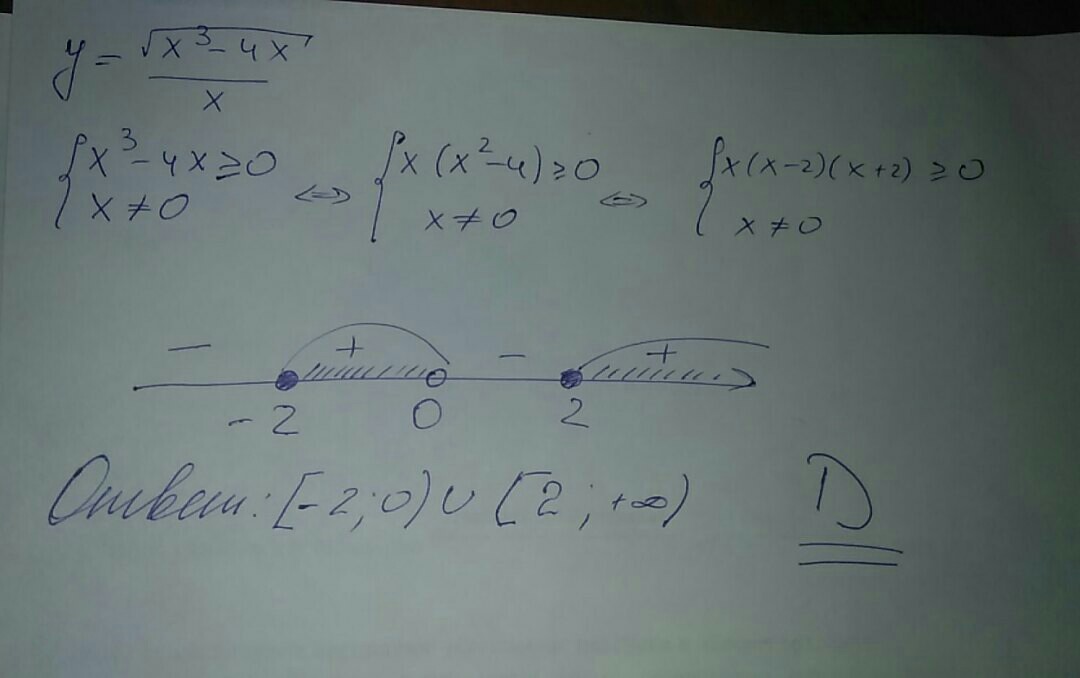 y = √(x³ - 4x) / x
{ x³ - 4x ≥ 0 ⇔ { x(x² - 4) ≥ 0 ⇔ { x(x-2)(x+2) ≥ 0
x ≠ 0 x ≠ 0 x ≠ 0
- + - +
-2 0 2
Ответ: [-2; 0) ∪ [2; +∞) D